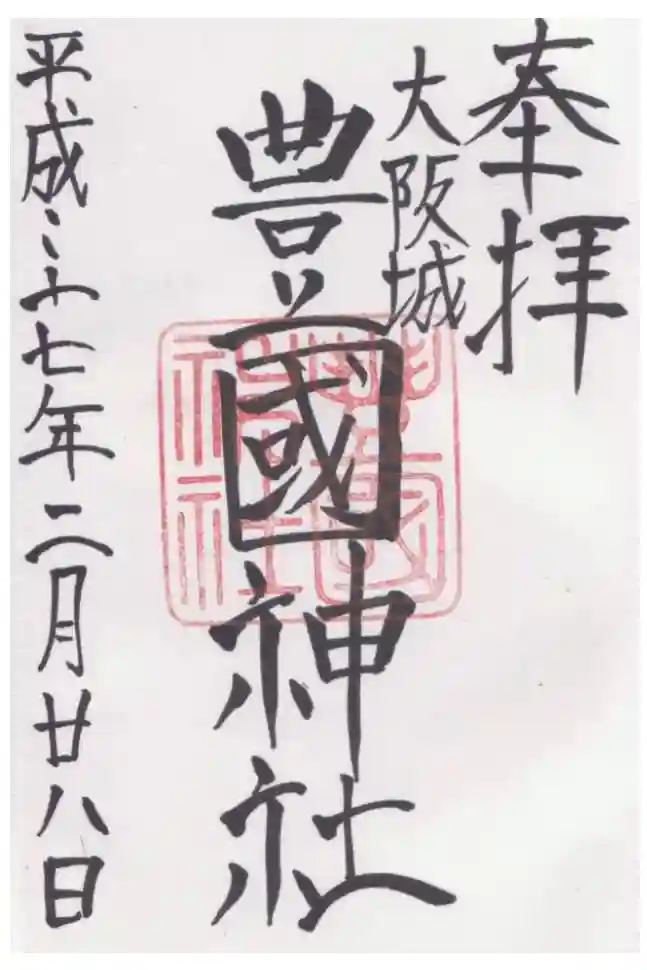 奉拝
大阪城
豊國神社
豊國
神社
平成二十七年二月廿八日